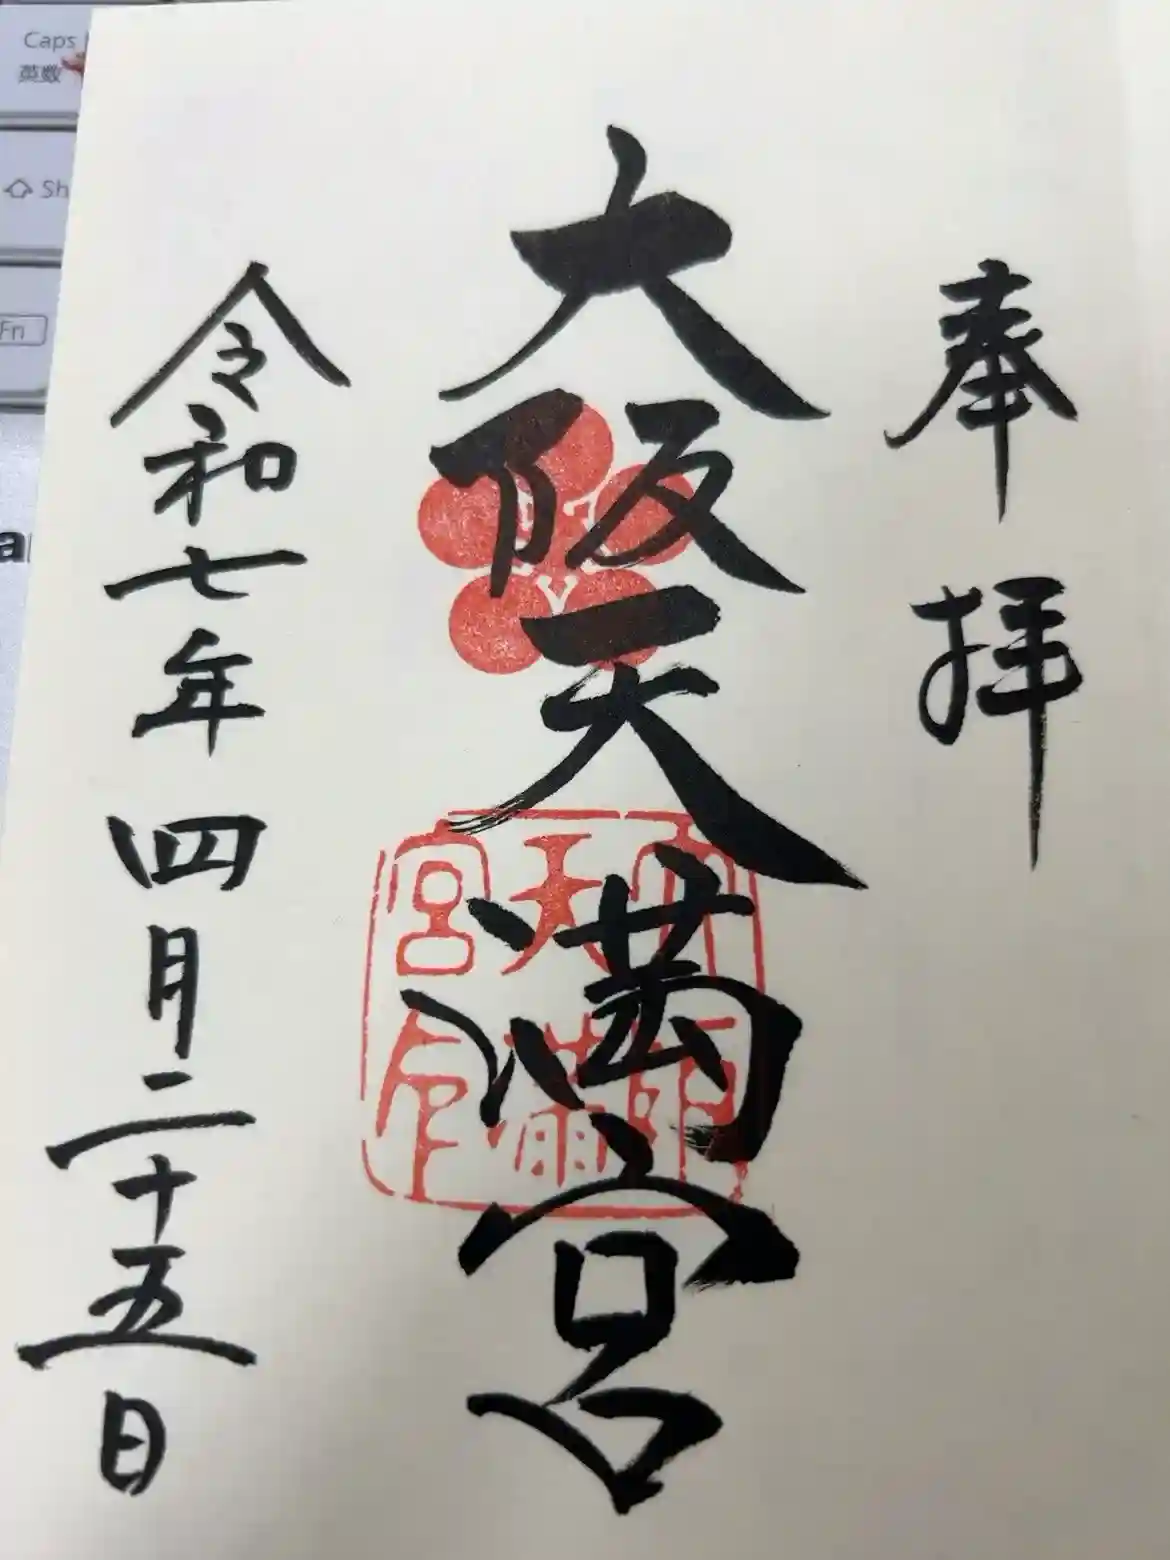 奉拝
大阪天満宮
令和七年四月二十五日
Caps
英数
Sh
Fn
a